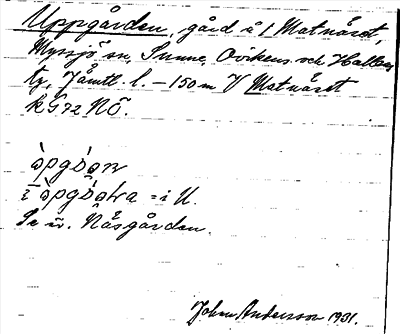 Uppgården, gård i f Matnäset,
Myssjö sn, Sunne, Ovikens och Hallens
tg, Jämtl. l. – 150 m V Matnäset
kG 72 NÖ.
= i U.
Se äv. Näsgården.
Johan Anderson 1931.